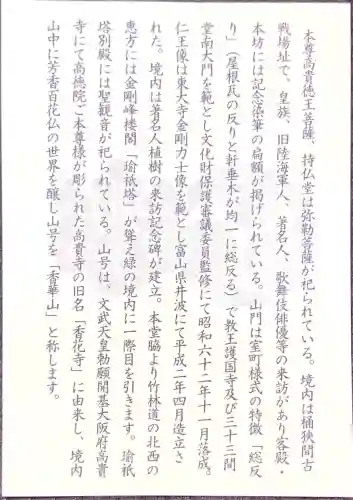 本尊高貴徳王菩薩、持仏堂は弥勒菩薩が祀られている。境内は桶狭間古
戦場址で、皇族、旧陸海軍人、著名人、歌舞伎俳優等の来訪があり客殿・
本坊には記念染筆の扁額が掲げられている。山門は室町様式の特徴「総反
り」（屋根瓦の反りと軒垂木が均一に総反る）で教王護国寺及び三十三間
堂南大門を範とし文化財保護審議委員監修にて昭和六十二年十一月落成。
仁王像は東大寺金剛力士像を範とし富山県井波にて平成二年四月造立さ
れた。境内は著名人植樹の来訪記念碑が建立。本堂脇より竹林道の北西の
恵方には金剛峰楼閣「瑜祇塔」が聳え緑の境内に一際目を引きます。瑜祇
塔別殿には聖観音が祀られている。山号は、文武天皇勅願開基大阪府高貴
寺にて高徳院ご本尊様が彫られた高貴寺の旧名「香花寺」に由来し、境内
山中に芳香百花仏の世界を醸し山号を「香華山」と称します。